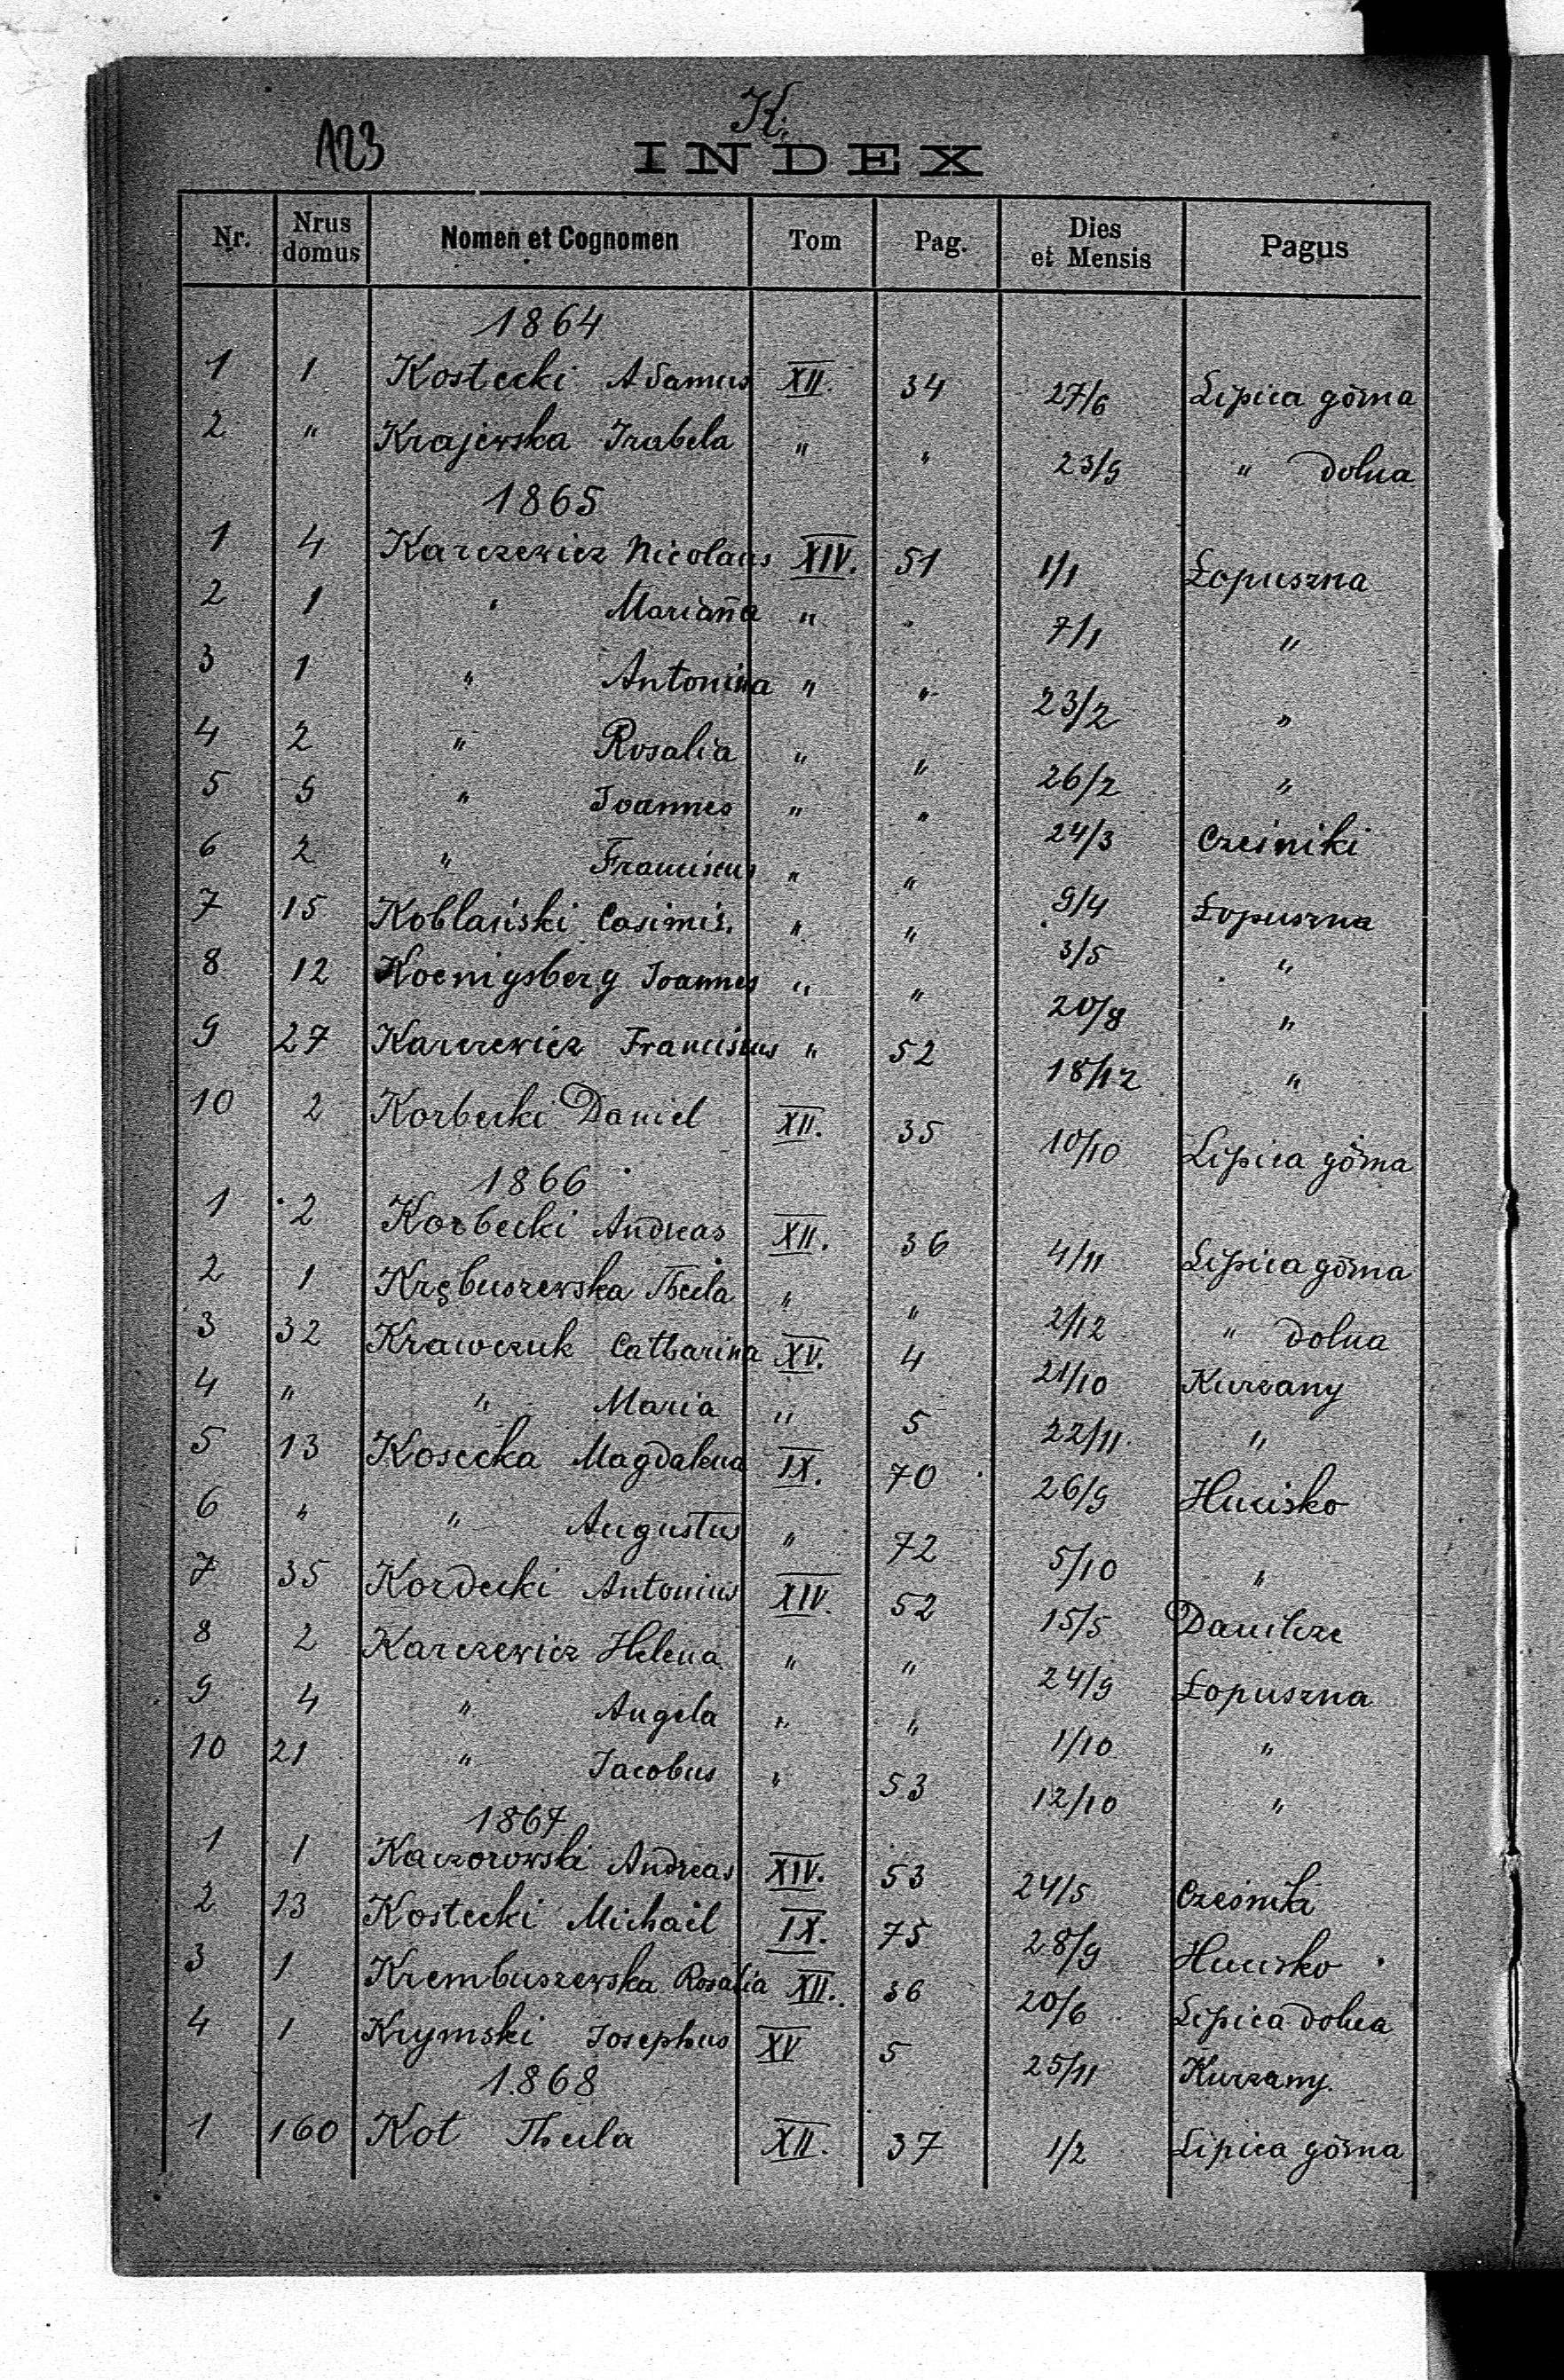 K.
123
INDEX
Nr. Nrus domus Nomen et Cognomen Tom Pag. Dies et Mensis Pagus
1864
1 1 Kostecki Adamus XII. 34 27/6 Lipica górna
2 " Krajewska Izabela " " 23/9 " dolna
1865
1 4 Karczewicz Nicolaus XIV. 51 1/1 Łopuszna
2 1 " Marianna " " 7/1 "
3 1 " Antonina " " 23/2 "
4 2 " Rosalia " " 26/2 "
5 9 " Joannes " " 24/3 Cześniki
6 2 " Franciscus " " 9/4 Łopuszna
7 15 Koblański Casimir. " " 3/5 "
8 12 Koenigsberg Joannes " " 20/8 "
9 27 Karczewicz Franciscus " 52 18/12 "
10 2 Korbecki Daniel XII. 35 10/10 Lipica górna
1866
1 2 Korbecki Andreas XII. 36 4/11 Lipica górna
2 1 Krębuszewska Thecla " " 2/12 " dolna
3 32 Krawczuk Catharina XV. 4 21/10 Kurzany
4 " " Maria " 5 22/11 "
5 13 Kosecka Magdalena IX. 70 26/9 Hucisko
6 " " Augustus " 72 5/10 "
7 35 Kordecki Antonius XIV. 52 15/5 Danilcze
8 2 Karczewicz Helena " " 24/9 Łopuszna
9 4 " Angela " " 1/10 "
10 21 " Jacobus " 53 12/10 "
1867
1 1 Kaczorowski Andreas XIV. 53 24/5 Cześniki
2 13 Kostecki Michael IX. 75 28/9 Hucisko
3 1 Krembuszewska Rosalia XII. 36 20/6 Lipica dolna
4 1 Krymski Josephus XV 5 25/11 Kurzany.
1868
1 160 Kot Thecla XII. 37 1/2 Lipica górna